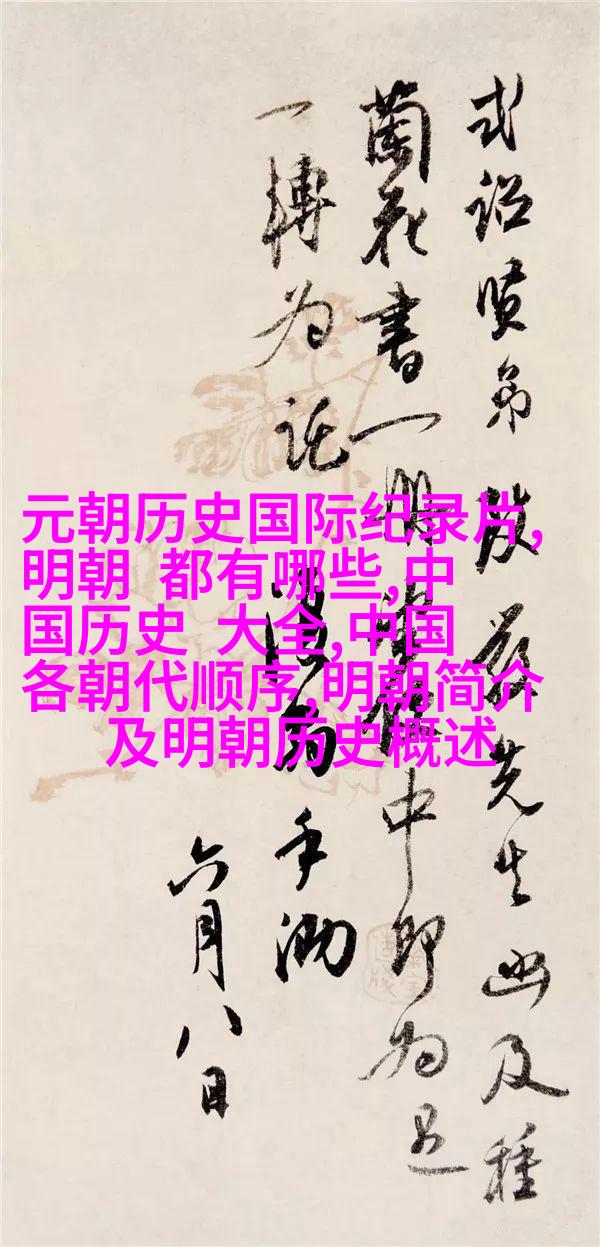 元朝历史国际纪录片,
明朝  都有哪些,中
国历史  大全,中国
各朝代顺序,明朝简介
及明朝历史概述
式诏贤弟 先生 及種
蘭花書一 中即为
一轉为託 手泐
六月八日